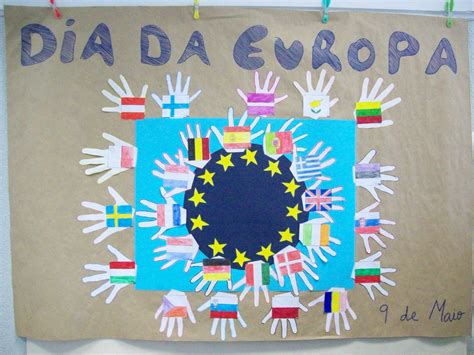 DIA DA EUROPA
9 de Maio